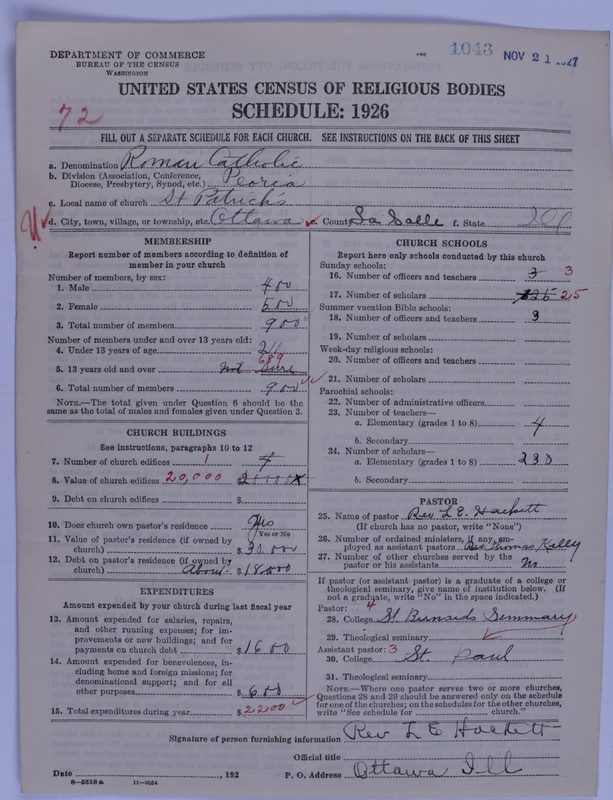 1043 NOV 21 1927
DEPARTMENT OF COMMERCE
BUREAU OF THE CENSUS
WASHINGTON
UNITED STATES CENSUS OF RELIGIOUS BODIES
SCHEDULE: 1926
72
FILL OUT A SEPARATE SCHEDULE FOR EACH CHURCH. SEE INSTRUCTIONS ON THE BACK OF THIS SHEET
a. Denomination Roman Catholic
b. Division (Association, Conference, Diocese, Presbytery, Synod, etc.) Peoria
c. Local name of church St Patricks
d. City, town, village, or township, etc. Ottawa e. County La Salle f. State Ill
MEMBERSHIP
Report number of members according to definition of
member in your church
Number of members, by sex:
1. Male 400
2. Female 500
3. Total number of members 900
Number of members under and over 13 years old:
4. Under 13 years of age 211
689
5. 13 years old and over Not Sure
6. Total number of members 900
NOTE.—The total given under Question 6 should be
same as the total of males and females given under Question 3.
CHURCH BUILDINGS
See instructions, paragraphs 10 to 12
7. Number of church edifices 1 4
8. Value of church edifices 20,000
9. Debt on church edifices $
10. Does church own pastor's residence Yes
Yes or No
11. Value of pastor's residence (if owned by
church) $30.000
12. Debt on pastor's residence (if owned by
church) About $18000
EXPENDITURES
Amount expended by your church during last fiscal year
13. Amount expended for salaries, repairs,
and other running expenses; for im-
provements or new buildings; and for
payments on church debt $1600
14. Amount expended for benevolences, in-
cluding home and foreign missions; for
denominational support; and for all
other purposes $600
15. Total expenditures during year $2200
CHURCH SCHOOLS
Report here only schools conducted by this church
Sunday schools:
16. Number of officers and teachers 3 3
17. Number of scholars 25
Summer vacation Bible schools:
18. Number of officers and teachers 3
19. Number of scholars
Week-day religious schools:
20. Number of officers and teachers
21. Number of scholars
Parochial schools:
22. Number of administrative officers
23. Number of teachers—
a. Elementary (grades 1 to 8) 4
b. Secondary
24. Number of scholars—
a. Elementary (grades 1 to 8) 230
b. Secondary
PASTOR
25. Name of pastor Rev L E Hackett
(If church has no pastor, write "None")
26. Number of ordained ministers, if any, em-
ployed as assistant pastors Rev Thomas Kelly
27. Number of other churches served by the
pastor or his assistants No
If pastor (or assistant pastor) is a graduate of a college or
theological seminary, give name of institution below. (If
not a graduate, write "No" in the space indicated.)
Pastor: 4
28. College St Bernards Seminary
29. Theological seminary
Assistant pastor: 3
30. College St. Paul
31. Theological seminary
NOTE.—Where one pastor serves two or more churches,
Questions 28 and 29 should be answered only on the schedule
for one of the churches; on the schedules for the other churches,
write "See schedule for church."
Signature of person furnishing information Rev L E Hackett
Official title
Date , 192 P. O. Address Ottawa Ill
8-5518a 11-9054